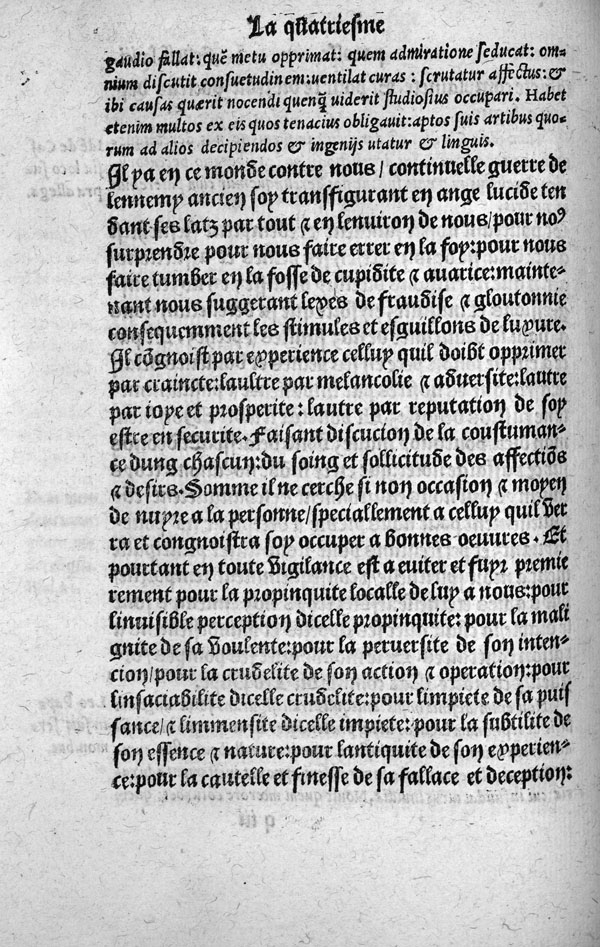 La quatriesme
gaudio fallat: quē metu opprimat: quem admiratione seducat: om-
nium discutit consuetudinem: uentilat curas: scrutatur affectus: &
ibi causas quaerit nocendi quenq̃ uiderit studiosius occupari. Habet
etenim multos ex eis quos tenacius obligauit: aptos suis artibus quo-
rum ad alios decipiendos & ingenijs utatur & linguis.
Il ya en ce monde contre nous/ continuelle guerre de
lennemy ancien soy transfigurant en ange lucide ten
dant ses latz par tout & en lenuiron de nous/ pour noꝰ
surprendre pour nous faire errer en la foy: pour nous
faire tumber en la fosse de cupidite & auarice: mainte-
nant nous suggerant lexes de fraudise & gloutonnie
consequemment les stimules et esguillons de luxure.
Il cōgnoist par experience celluy quil doibt opprimer
par craincte: laultre par melancolie & aduersite: lautre
par ioye et prosperite: lautre par reputation de soy
estre en securite. Faisant discucion de la coustuman-
ce dung chascun: du soing et sollicitude des affectiōs
& desirs. Somme il ne cerche si non occasion & moyen
de nuyre a la personne/ speciallement a celluy quil ver
ra et congnoistra soy occuper a bonnes oeuures. Et
pourtant en toute vigilance est a euiter et fuyr premie
rement pour la propinquite localle de luy a nous: pour
linuisible perception dicelle propinquite: pour la mali
gnite de sa voulente: pour la peruersite de son inten-
cion/ pour la crudelite de son action & operation: pour
linsaciabilite dicelle crudelite: pour limpiete de sa puis
sance/ & limmensite dicelle impiete: pour la subtilite de
son essence & nature: pour lantiquite de son experien-
ce: pour la cautelle et finesse de sa fallace et deception: